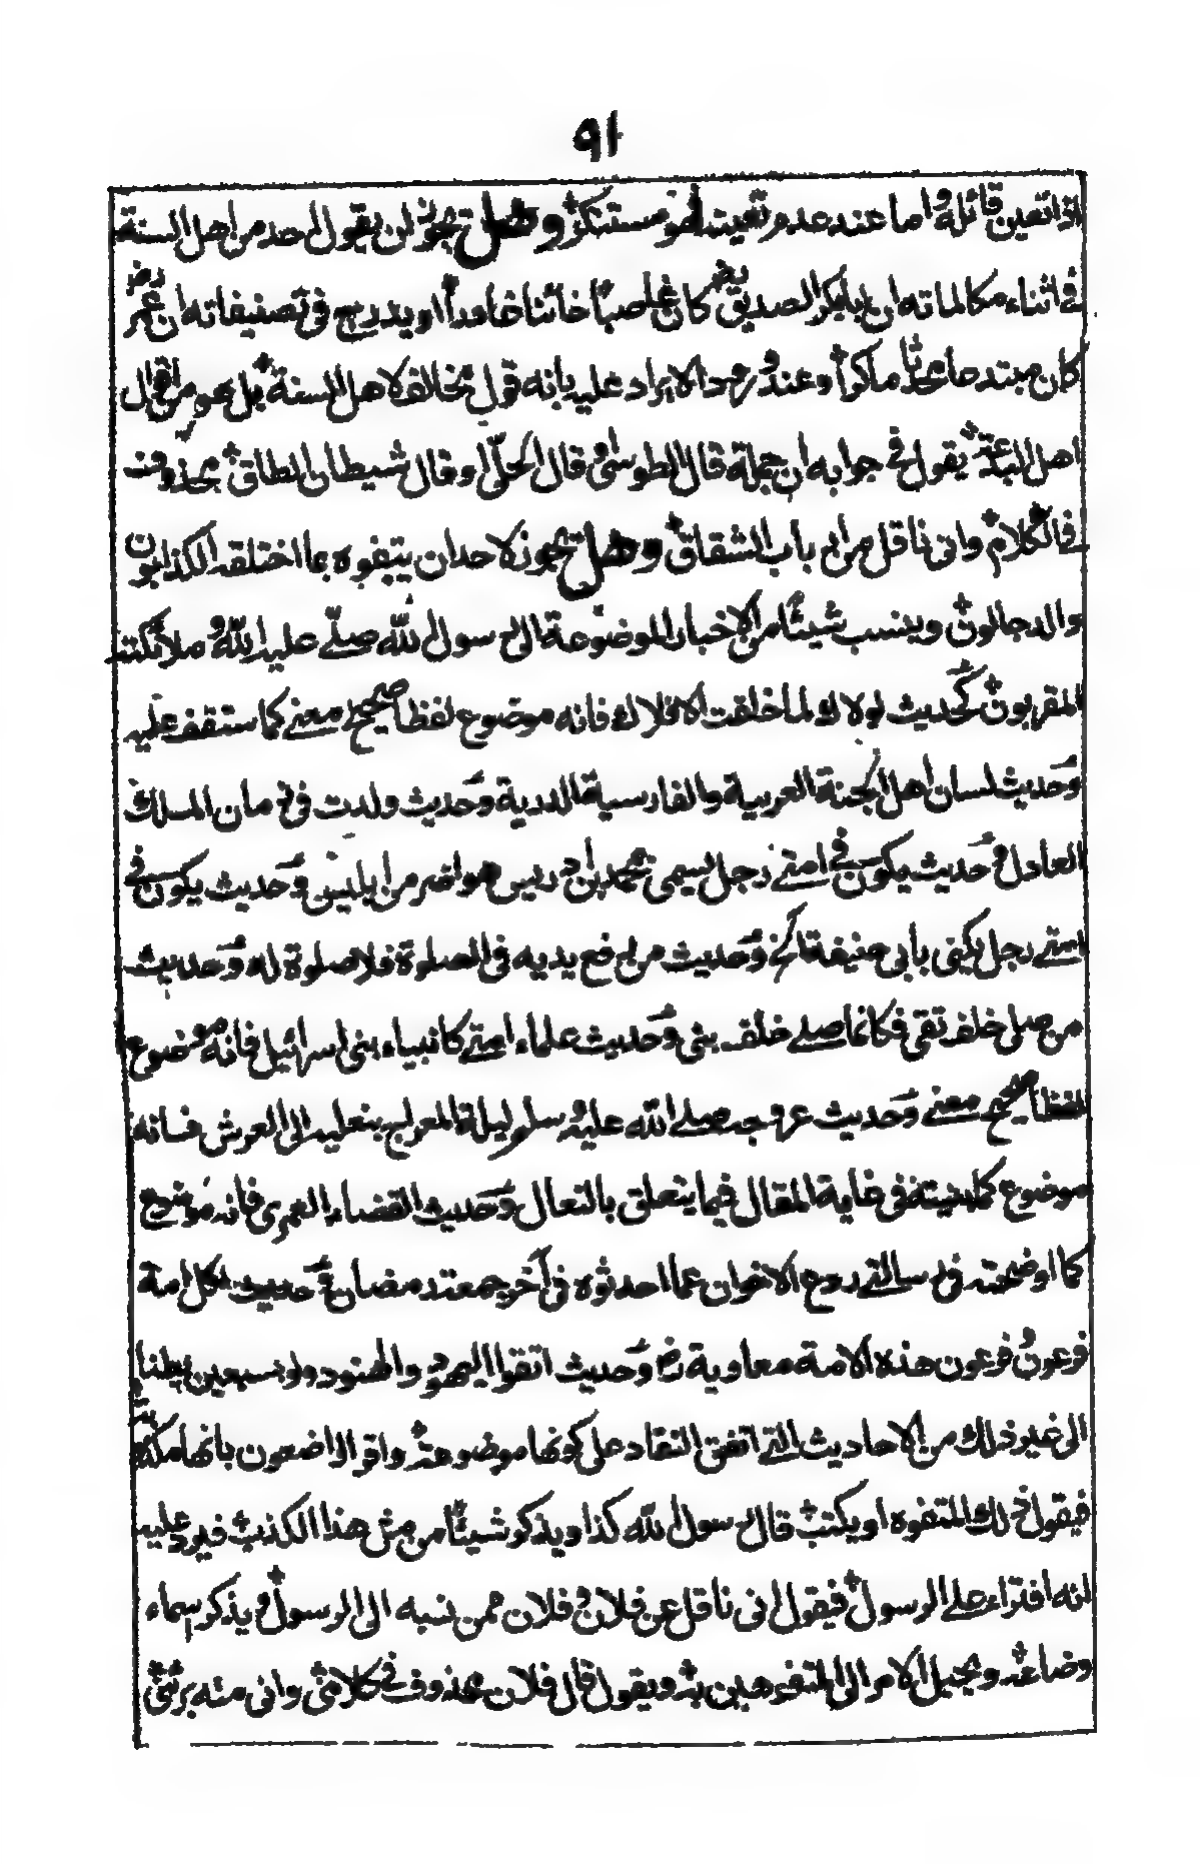 ٩١
اذا تعين قائله واما عند عدم تعيينه فهو مستنكر وهل يجوز لن يقول احد من اهل السنة
في اثناء مكالماته ان ابابكر الصديق رض كان غاصبا خائنا خادعا او يدرج في تصنيفاته ان عمر رض
كان مبتدعا محدثا ماكرا وعند ورود الايراد عليه بانه قول مخالف لاهل السنة بل هو من اقوال
اهل البدعة يقول في جوابه ان جملة قال الطوسي او قال الحلّي او قال شيطان الطاق محذوفة
في الكلام واني ناقل من ارباب الشقاق وهل يجوز لاحد ان يتفوه بما اختلقه الكذابون
والدجالون وينسب شيئا من الاخبار الموضوعة الى رسول الله صلّى عليه الله وملائكته
المقربون كحديث لولاك لما خلقت الافلاك فانه موضوع لفظا صحيح معنى كما ستقف عليه
وحديث لسان اهل الجنة العربية والفارسية الدرية وحديث ولدت في زمان الملك
العادل وحديث يكون في امتي رجل يسمى محمد بن ادريس هو اضر من ابليس وحديث يكون في
امتي رجل يكنى بابي حنيفة الخ وحديث من رفع يديه في الصلوة فلا صلوة له وحديث
من صلى خلف تقي فكانما صلى خلف نبي وحديث علماء امتي كانبياء بني اسرائيل فانه موضوع
لفظا صحيح معنى وحديث عروجه صلى الله عليه وسلم ليلة المعراج بنعليه الى العرش فانه
موضوع كما بينته في غاية المقال فيما يتعلق بالنعال وحديث القضاء العمري فانه موضوع
كما اوضحته في رسالتي ردع الاخوان عما احدثوه في آخر جمعة رمضان وحديث لكل امة
فرعون وفرعون هذه الامة معاوية رض وحديث اتقوا اليهود والهنود ولو بسبعين بطنا
الى غير ذلك من الاحاديث التي اتفق النقاد على كونها موضوعة واقر الواضعون بانها مكذوبة
فيقول ذلك المتفوه او يكتب قال رسول الله كذا ويذكر شيئا من مثل هذا الكذب فيرد عليه
انه افتراء على الرسول فيقول اني ناقل عن فلان وفلان ممن نسبه الى الرسول ويذكر اسماء
وضاعه ويحيل الامر الى المتفوهين به ويقول قال فلان محذوف في كلامي واني منه برئ